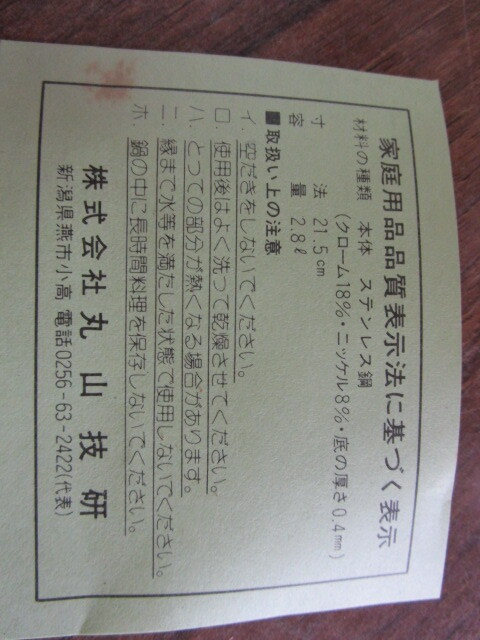 家庭用品品質表示法に基づく表示
材料の種類　本体　ステンレス鋼
(クローム18%・ニッケル8%・底の厚さ0.4mm)
寸　法　21.5cm
容　量　2.8ℓ
■取扱い上の注意
イ. 空だきをしないでください。
ロ. 使用後はよく洗って乾燥させてください。
ハ. とっての部分が熱くなる場合があります。
ニ. 縁まで水等を満たした状態で使用しないでください。
ホ. 鍋の中に長時間料理を保存しないでください。
株式会社丸山技研
新潟県燕市小高 電話0256-63-2422(代表)